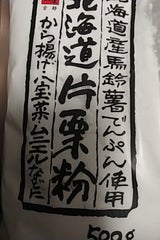 北海道産馬鈴薯でんぷん使用
北海道片栗粉
から揚げ・八宝菜・ムニエルなどに
500g